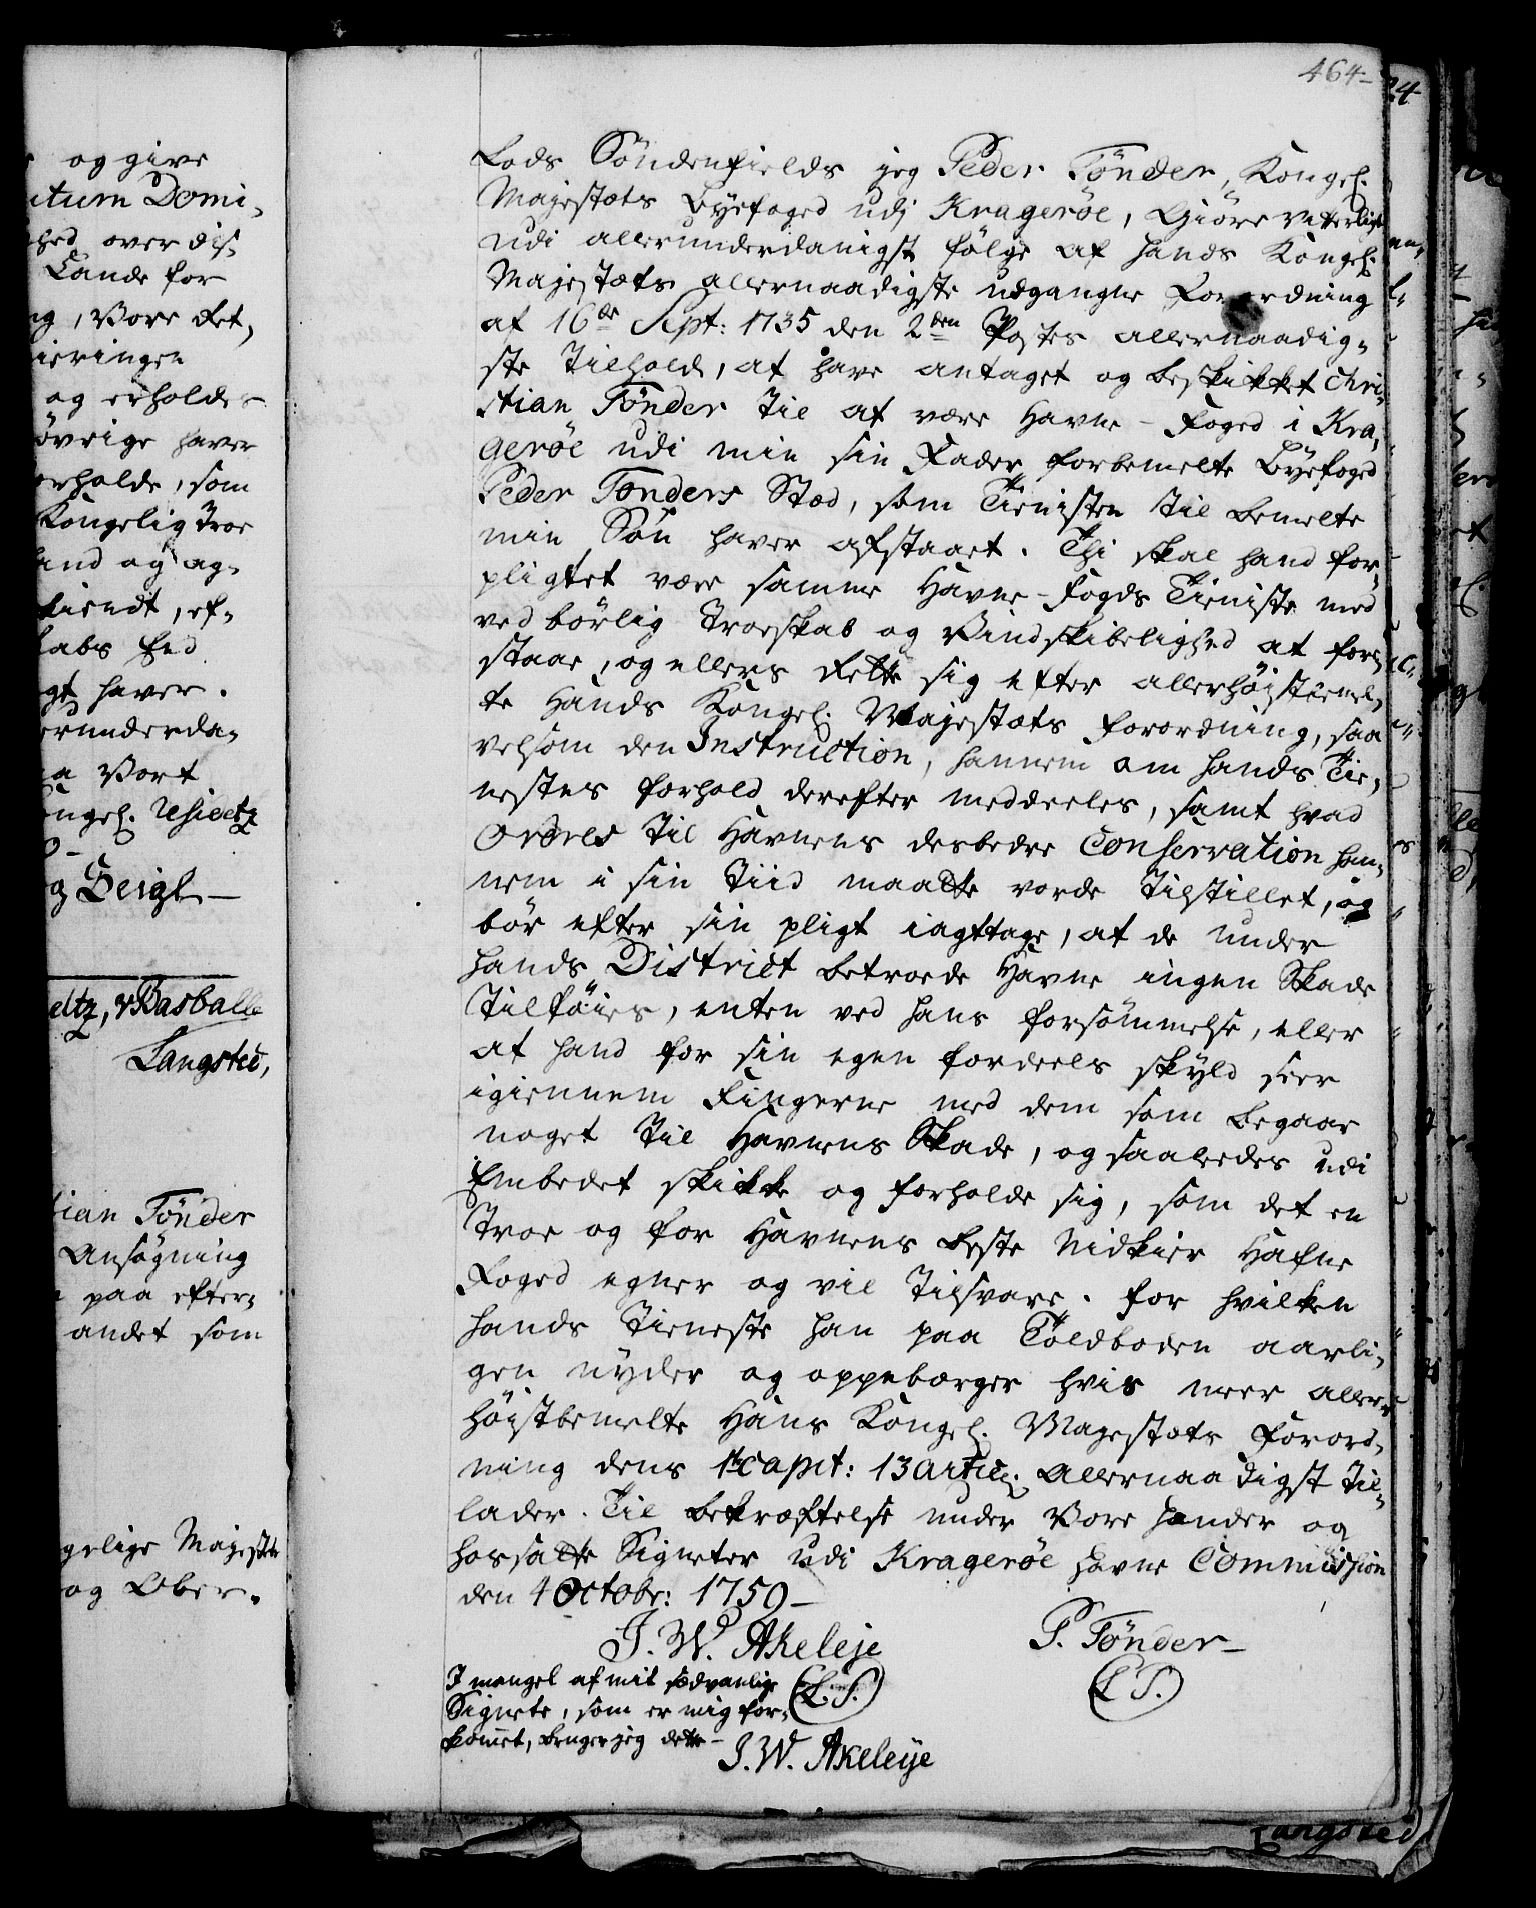 464
og give
Domi-
over dis-
Lande for
, Vore Ret,
ieringen
og erholder
øvrige haver
forholde, som
Kongelig Troe
haand og ag-
kiendt, ef-
gt haver.
erunderda-
Vort
Kongel. Residtz
og Seigl
eltz, v Basballe
Langsted,
ian Tönder
Ansøgning
paa efter-
andet som
gelige Majestts
og Ober-
Lods Söndenfields jeg Peder Tönder, Kongel.
Majestæts Byefoged udj Krageröe, Giöre Vitterligt
udi allerunderdanigst følge af hands Kongel.
Majestæts allernaadigste udgangne Forordning
af 16de Sept: 1735 den 2den Postes allernaadig-
ste Tilhold, at have antaget og beskikket Chri-
stian Tönder til at være Havne-Foged i Kra-
geröe udi min sin Fader forbemelte Byefoged
Peder Tonders Stæd, som Tienisten til bemelte
min Sön haver afstaaet. Thi skal hand for-
pligtet være samme Havne-Fogds Tieniste med
ved börlig Troeskab og Vindskibelighed at fore-
staae, og ellers rette sig efter allerhöistbemel-
te Hands Kongel. Majestæts Forordning, saa
velsom den Instruction, hannem om hands Tie-
nestes Forhold derefter meddeeles, samt hvad
Ordres til Havnens desbedre Conservation han-
nem i sin Tiid maatte vorde tilstillet, og
bör efter sin pligt iagttage, at de under
hands District betroede Havne ingen Skade
tilföies, enten ved hans forsömmelse, eller
at hand for sin egen fordeels skyld seer
igiennem Fingerne med dem som begaar
noget til Havnens Skade, og saaledes udi
Embedet skikke og forholde sig, som det en
Troe og for Havnens beste Nidkier Hafne
Foged egner og vil tilsvare. For hvilken
hands Tieneste han paa Toldboden aarli-
gen nyder og oppebærger hvis meer aller-
höistbemelte Hans Kongel. Magestæts Forord-
ning dens 1te Capit: 13 Articl. Allernaadigst til-
lader. Til bekræftelse under Vore Hænder og
hossatte Signeter udi Krageröe Havne Commission
den 4 Octobr: 1759
J. W. Akeleje
P. Tönder
I mangel af mit sædvanlige
Signete, som er mig for-
kommet, bruger jeg dette
(L.S.)
(L S.)
J. W. Akeleye
Langsted